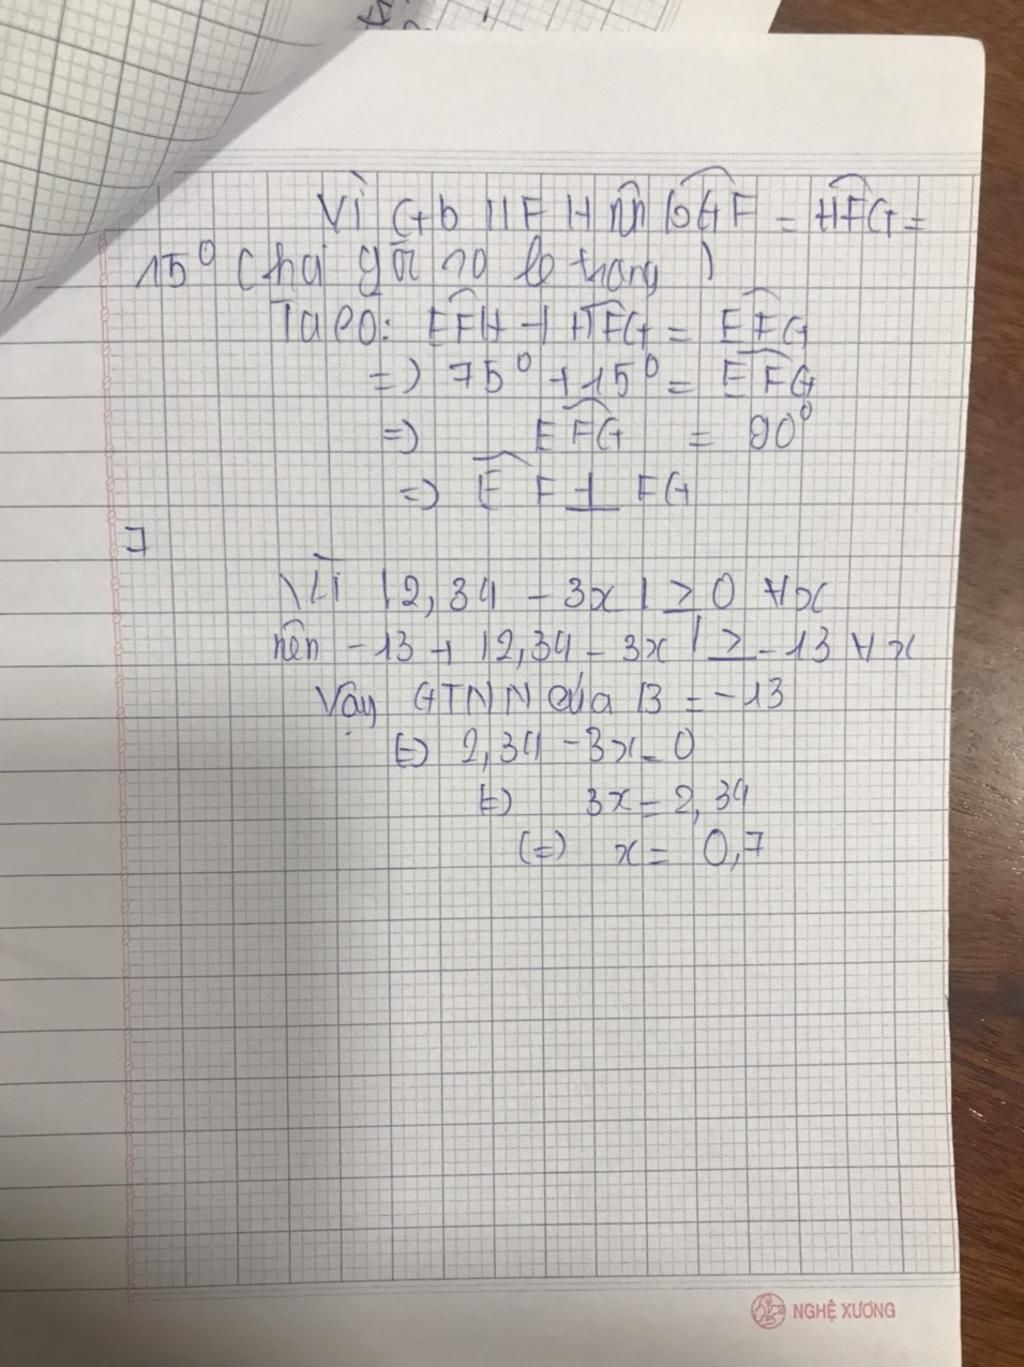 Vì Gb // FH nên bGF = HFG =
15° (hai góc so le trong)
Ta có: EFH + HFG = EFG
=> 75° + 15° = EFG
=> EFG = 90°
=> EF ⊥ FG
Vì |2,34 - 3x| ≥ 0 ∀x
nên -13 + |2,34 - 3x| ≥ -13 ∀x
Vậy GTNN của B = -13
(=) 2,34 - 3x = 0
(=) 3x = 2,34
(=) x = 0,7
NGHỆ XƯƠNG